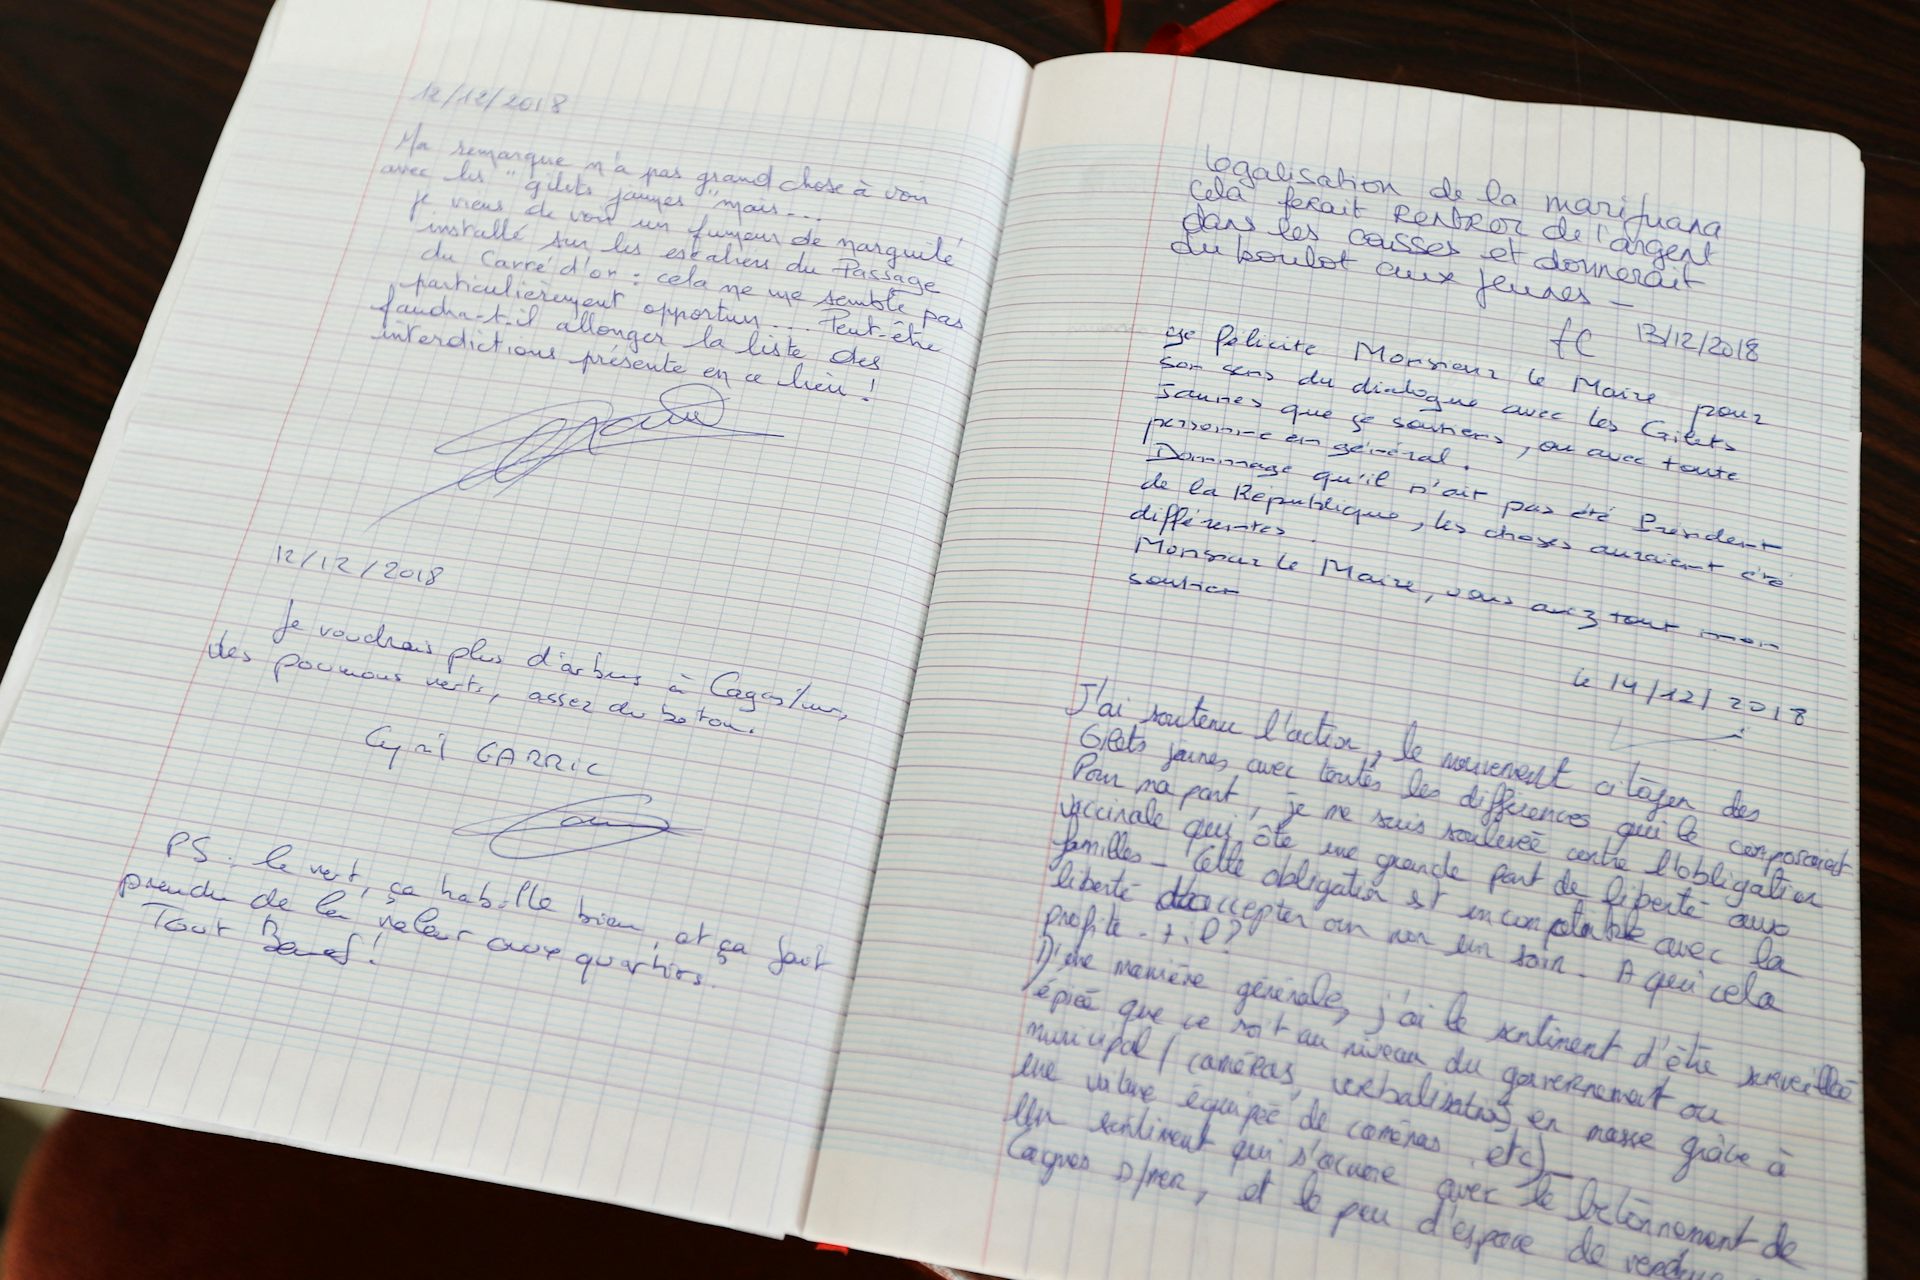 12/12/2018
Ma remarque n'a pas grand chose à voir
avec les "gilets jaunes" mais...
je viens de voir un fumeur de narguilé
installé sur les escaliers du Passage
du Carré d'or : cela ne me semble pas
particulièrement opportun... Peut-être
faudra-t-il allonger la liste des
interdictions présente en ce lieu !
12/12/2018
Je voudrais plus d'arbres à Cagnes/mer,
des poumons verts, assez du beton.
Cyril GARRIC
PS : le vert, ça habille bien, et ça fait
prendre de la valeur aux quartiers.
Tout Benef !
legalisation de la marijuana
celà ferait rentrer de l'argent
dans les caisses et donnerait
du boulot aux jeunes –
fC 13/12/2018
Je félicite Monsieur le Maire pour
son sens du dialogue avec les Gilets
Jaunes que je soutiens, ou avec toute
personne en général.
Dommage qu'il n'ait pas été President
de la Republique, les choses auraient été
différentes.
Monsieur le Maire, vous avez tout mon
soutien
le 14/12/2018
J'ai soutenu l'action, le mouvement citoyen des
Gilets jaunes avec toutes les différences qui le composaient
Pour ma part, je me suis soulevée contre l'obligation
vaccinale qui ôte une grande part de liberté aux
familles – Cette obligation est incompatible avec la
liberté d'accepter ou non un soin – A qui cela
profite-t-il ?
D'une manière générale, j'ai le sentiment d'être surveillée
épiée que ce soit au niveau du gouvernement ou
municipal (caméras, verbalisation en masse grâce à
une voiture équipée de caméras, etc) –
Un sentiment qui s'accroie avec le bétonnement de
Cagnes s/mer, et le peu d'espace de